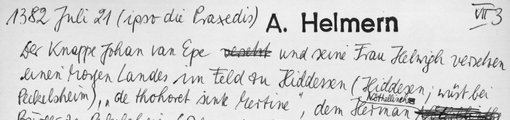 1382 Juli 21 (ipso die Praxedis) A. Helmern VII 3
Der Knappe Johan van Epe versetzt und seine Frau Helwigh versetzen
einen Morgen Landes im Feld zu Hiddessen (Hiddexen; wüst bei
Peckelsheim), "de thohoret sunte Mertine", dem Herman